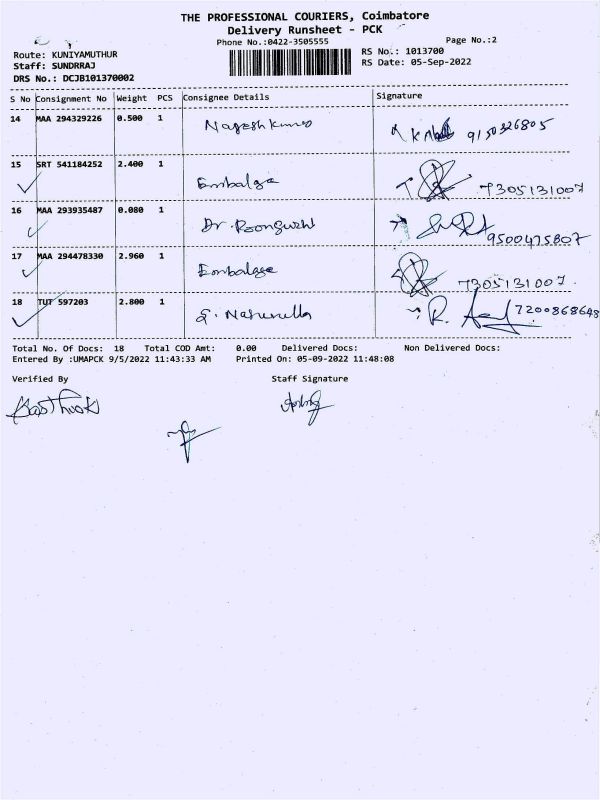 THE PROFESSIONAL COURIERS, Coimbatore
Delivery Runsheet - PCK
Phone No.:0422-3505555
Page No.:2
Route: KUNIYAMUTHUR
RS No.: 1013700
Staff: SUNDRRAJ
RS Date: 05-Sep-2022
DRS No.: DCJB101370002
S No Consignment No Weight PCS Consignee Details Signature
14 MAA 294329226 0.500 1 Nageshkumar 9150326805
15 SRT 541184252 2.400 1 7305131007
16 MAA 293935487 0.080 1 Dr. 9500475807
17 MAA 294478330 2.960 1 7305131007
18 TUT 597203 2.800 1 7200868648
Total No. Of Docs: 18 Total COD Amt: 0.00 Delivered Docs: Non Delivered Docs:
Entered By :UMAPCK 9/5/2022 11:43:33 AM Printed On: 05-09-2022 11:48:08
Verified By Staff Signature